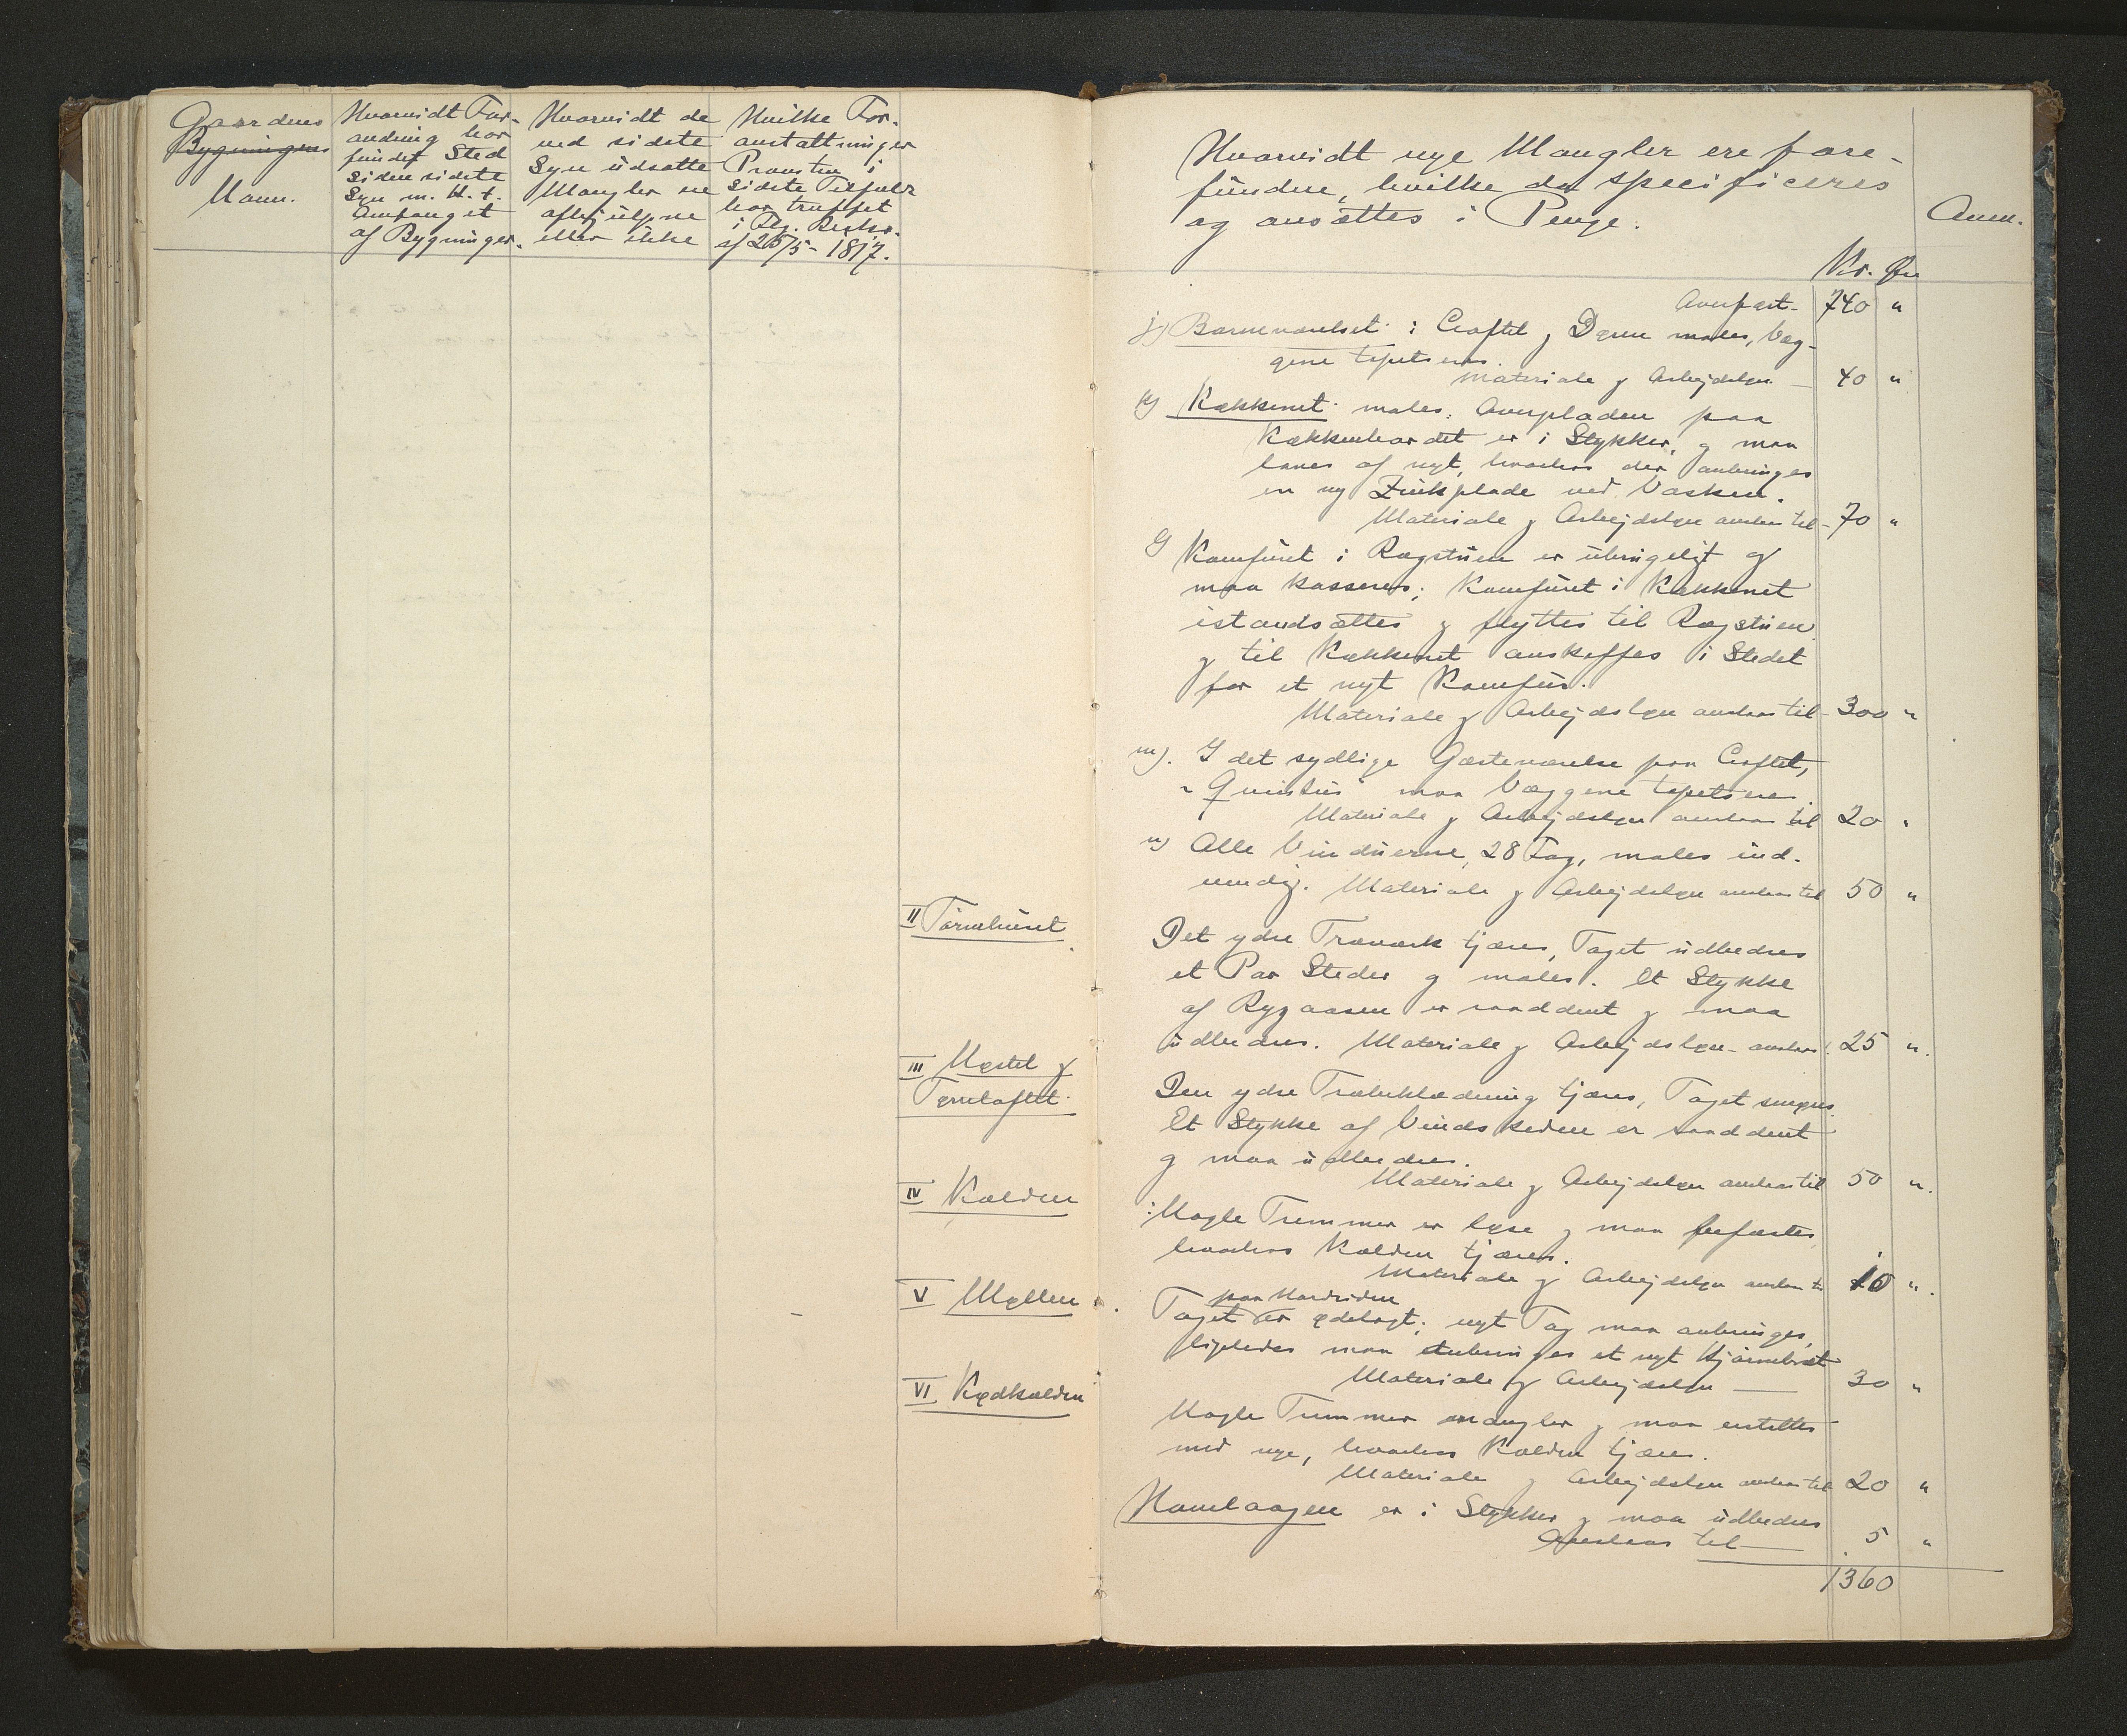 Gaardens
Bygningens
Navn.
Hvorvidt For-
andring har
fundet Sted
siden sidste
Syn m. H. t.
Omfanget
af Bygninger.
Hvorvidt de
ved sidste
Syn udsatte
Mangler ere
afhjulpne
eller ikke
Hvilke For-
anstaltninger
Provsten i
sidste Tilfælde
har truffet
i Flg. Reskr.
af 25/5 - 1817.
II Tørvehuset
III Hestel og
Tørveloftet.
IV Kælderen
V Møllen
VI Kødkælderen
Hvorvidt nye Mangler ere fore-
fundne, hvilke da specificeres
og ansættes i Penge.
Anm.
Kr. Øre
Overført - 740 "
j) Børneværelset: Loftet og Døren males, Væg-
gene tapetseres.
Materiale og Arbejdsløn — 40 "
k) Køkkenet males. Overpladen paa
Køkkenbordet er i Stykker, og maa
laves af nyt, hvorhos der anbringes
en ny Zinkplade ved Vasken.
Materiale og Arbejdsløn anslaas til - 70 "
l) Komfuret i Røgstuen er ubrugeligt og
maa kasseres; Komfuret i Køkkenet
istandsættes og flyttes til Røgstuen
og til Køkkenet anskaffes i Stedet
for et nyt Komfur.
Materiale og Arbejdsløn anslaas til - 300 "
m). I det sydlige Gæsteværelse paa Loftet,
maa Væggene tapetseres.
Materiale og Arbejdsløn anslaas til 20 "
n) Alle Vinduerne, 28 Fag, males ind-
vendig. Materiale og Arbejdsløn anslaas til 50 "
Det ydre Træværk tjæres, Taget udbedres
et Par Steder og males. Et Stykke
af Rygaasen er raaddent og maa
udbedres. Materiale og Arbejdsløn anslaas t. 25 "
Den ydre Træbeklædning tjæres, Taget smøres.
Et Stykke af Vindskeden er raaddent
og maa udbedres.
Materiale og Arbejdsløn anslaas til 50 "
Nogle Tremmer er løse og maa befæstes,
hvorhos Kælderen tjæres.
Materiale og Arbejdsløn anslaas til 10 "
paa Nordsiden
Taget er ødelagt; nyt Tag maa anbringes,
ligeledes maa anbringes et nyt Hjørnebræt
Materiale og Arbejdsløn — 30 "
Nogle Tremmer mangler og maa erstattes
med nye, hvorhos Kælderen tjæres.
Materiale og Arbejdsløn anslaas til 20 "
Havelaagen er i Stykker og maa udbedres
Anslaas til — 5 "
1360